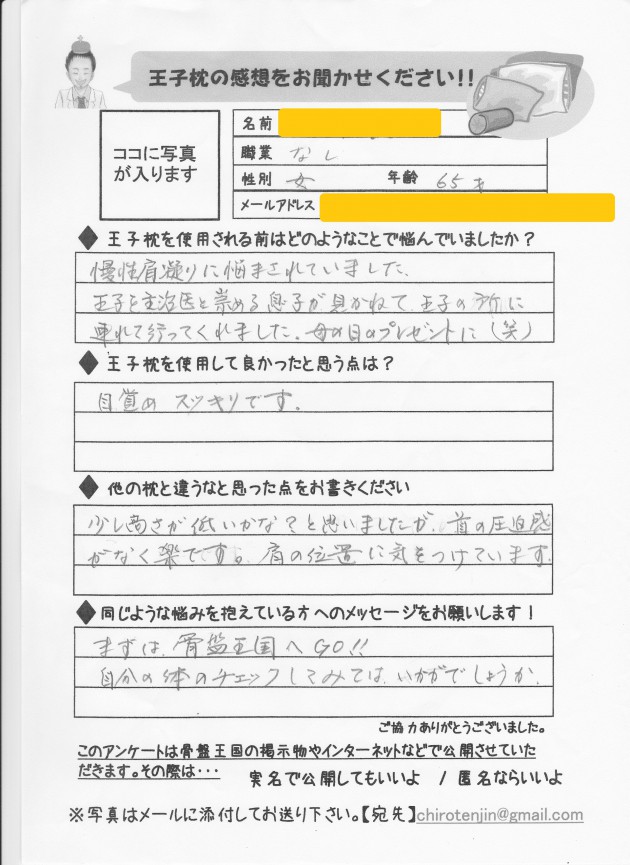 王子枕の感想をお聞かせください!!
ココに写真
が入ります
名前
職業 なし
性別 女 年齢 65才
メールアドレス
◆王子枕を使用される前はどのようなことで悩んでいましたか?
慢性肩凝りに悩まされていました。
王子を主治医と崇める息子が見かねて、王子の所に
連れて行ってくれました。母の日のプレゼントに(笑)
◆王子枕を使用して良かったと思う点は?
目覚め スッキリです。
◆他の枕と違うなと思った点をお書きください
少し高さが低いかな?と思いましたが、首の圧迫感
がなく楽です。肩の位置に気をつけています。
◆同じような悩みを抱えている方へのメッセージをお願いします!
まずは、骨盤王国へGO!!
自分の体のチェックしてみては、いかがでしょうか。
ご協力ありがとうございました。
このアンケートは骨盤王国の掲示物やインターネットなどで公開させていた
だきます。その際は・・・ 実名で公開してもいいよ / 匿名ならいいよ
※写真はメールに添付してお送り下さい。【宛先】chirotenjin@gmail.com